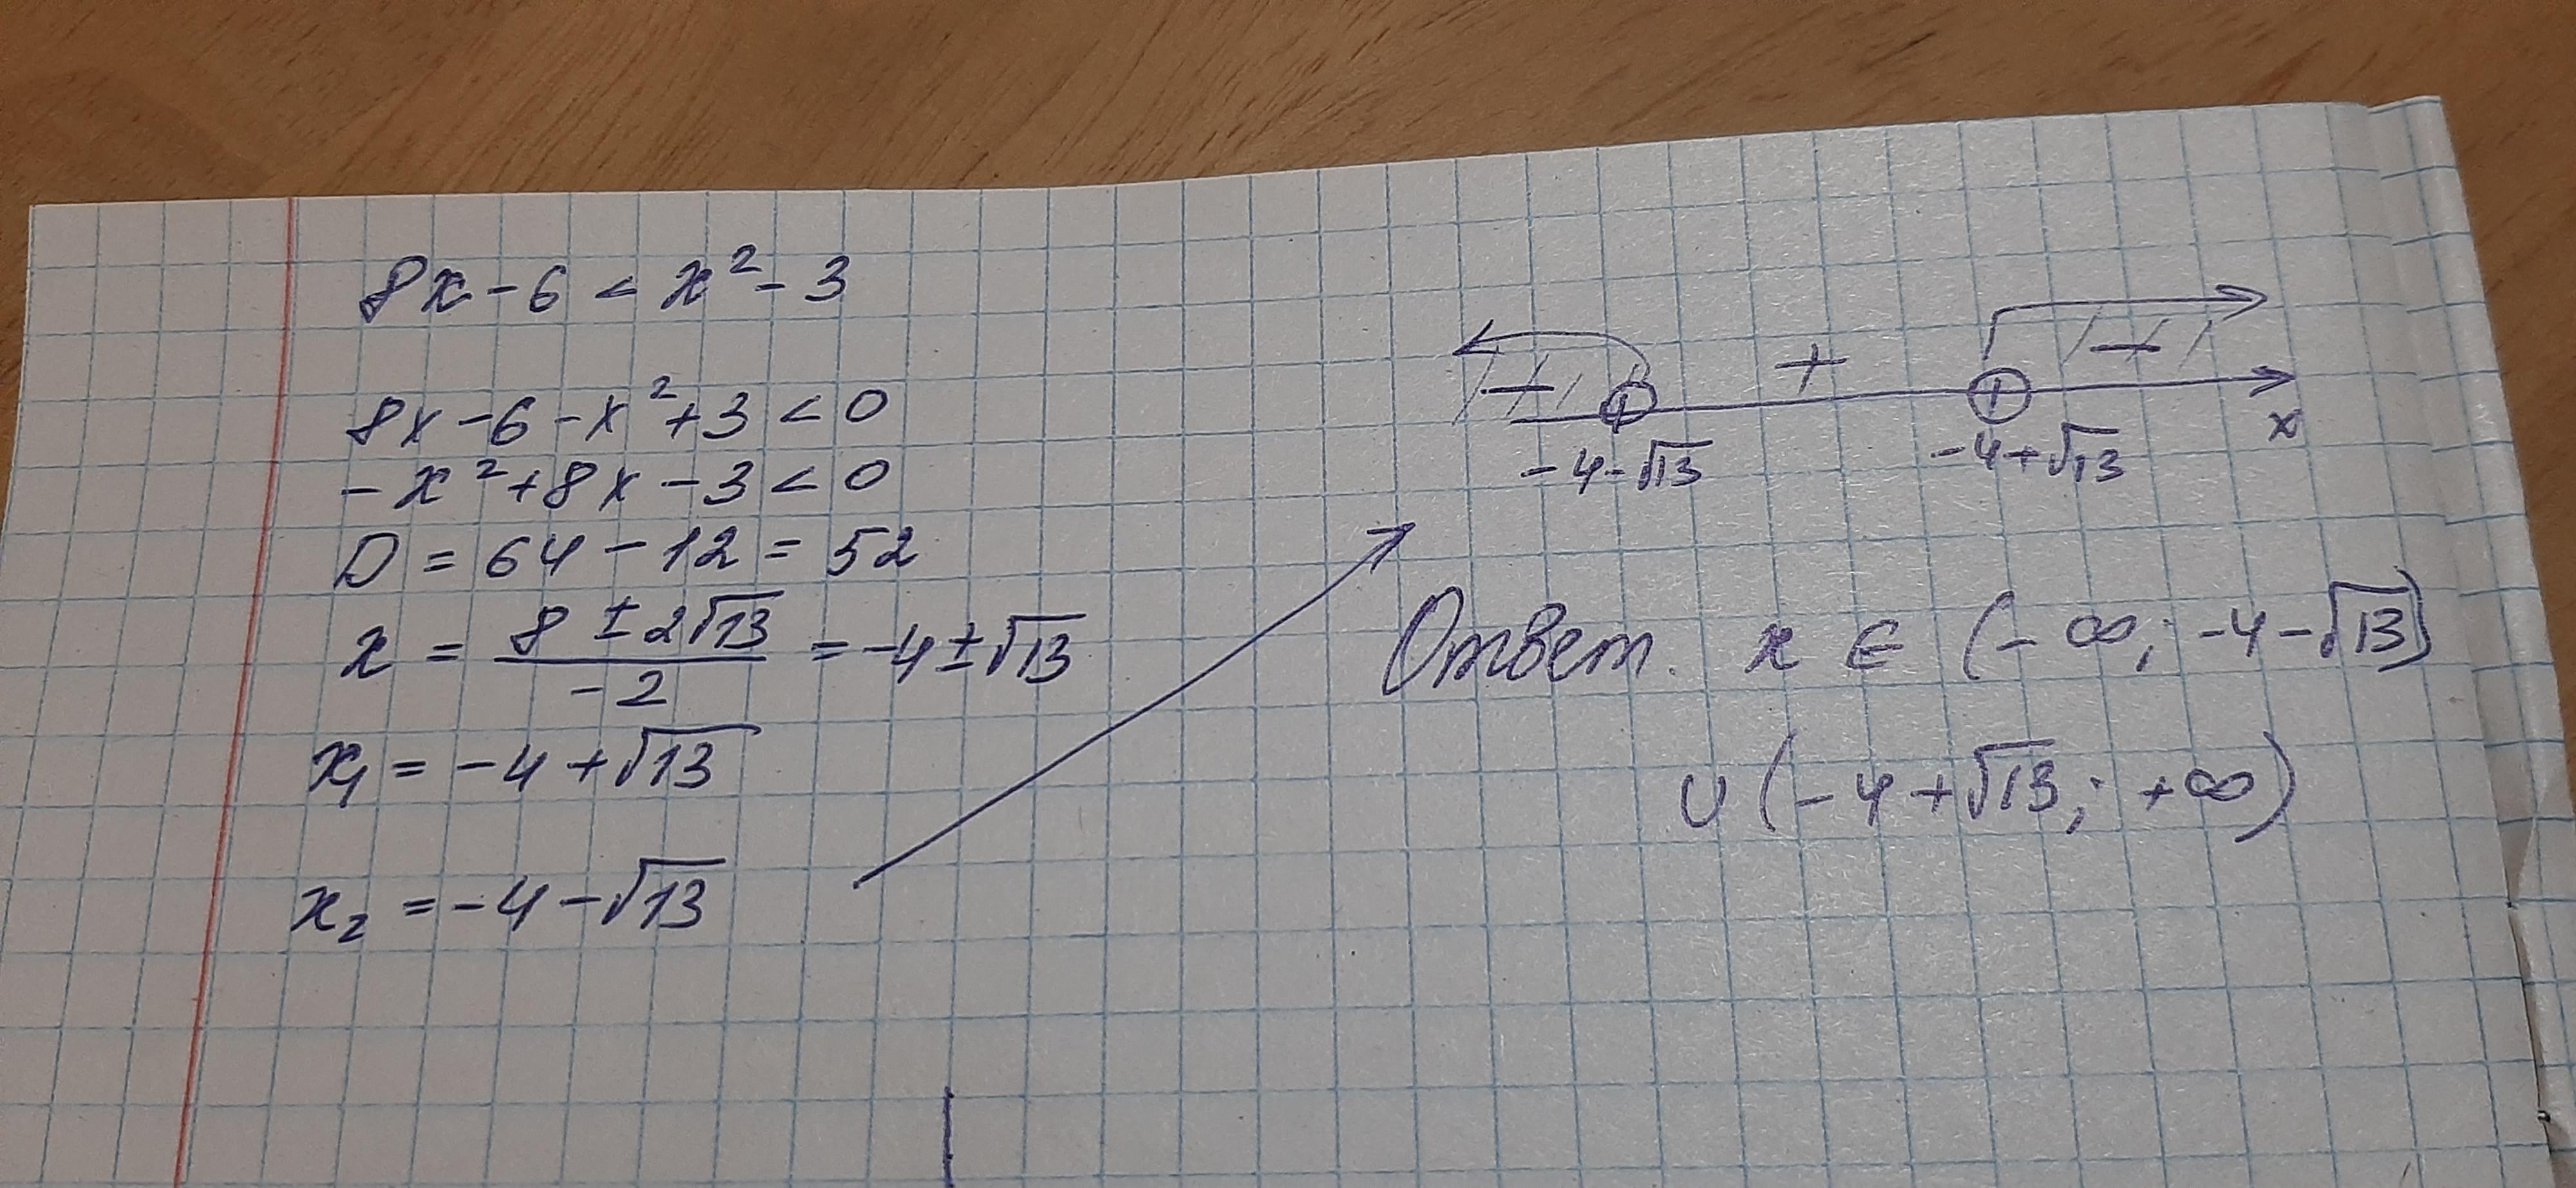 8x - 6 < x² - 3
8x - 6 - x² + 3 < 0
- x² + 8x - 3 < 0
D = 64 - 12 = 52
x = (8 ± 2√13)/(-2) = -4 ± √13
x₁ = -4 + √13
x₂ = -4 - √13
- + -
-4-√13 -4+√13 x
Ответ. x ∈ (-∞; -4-√13)
∪ (-4+√13; +∞)